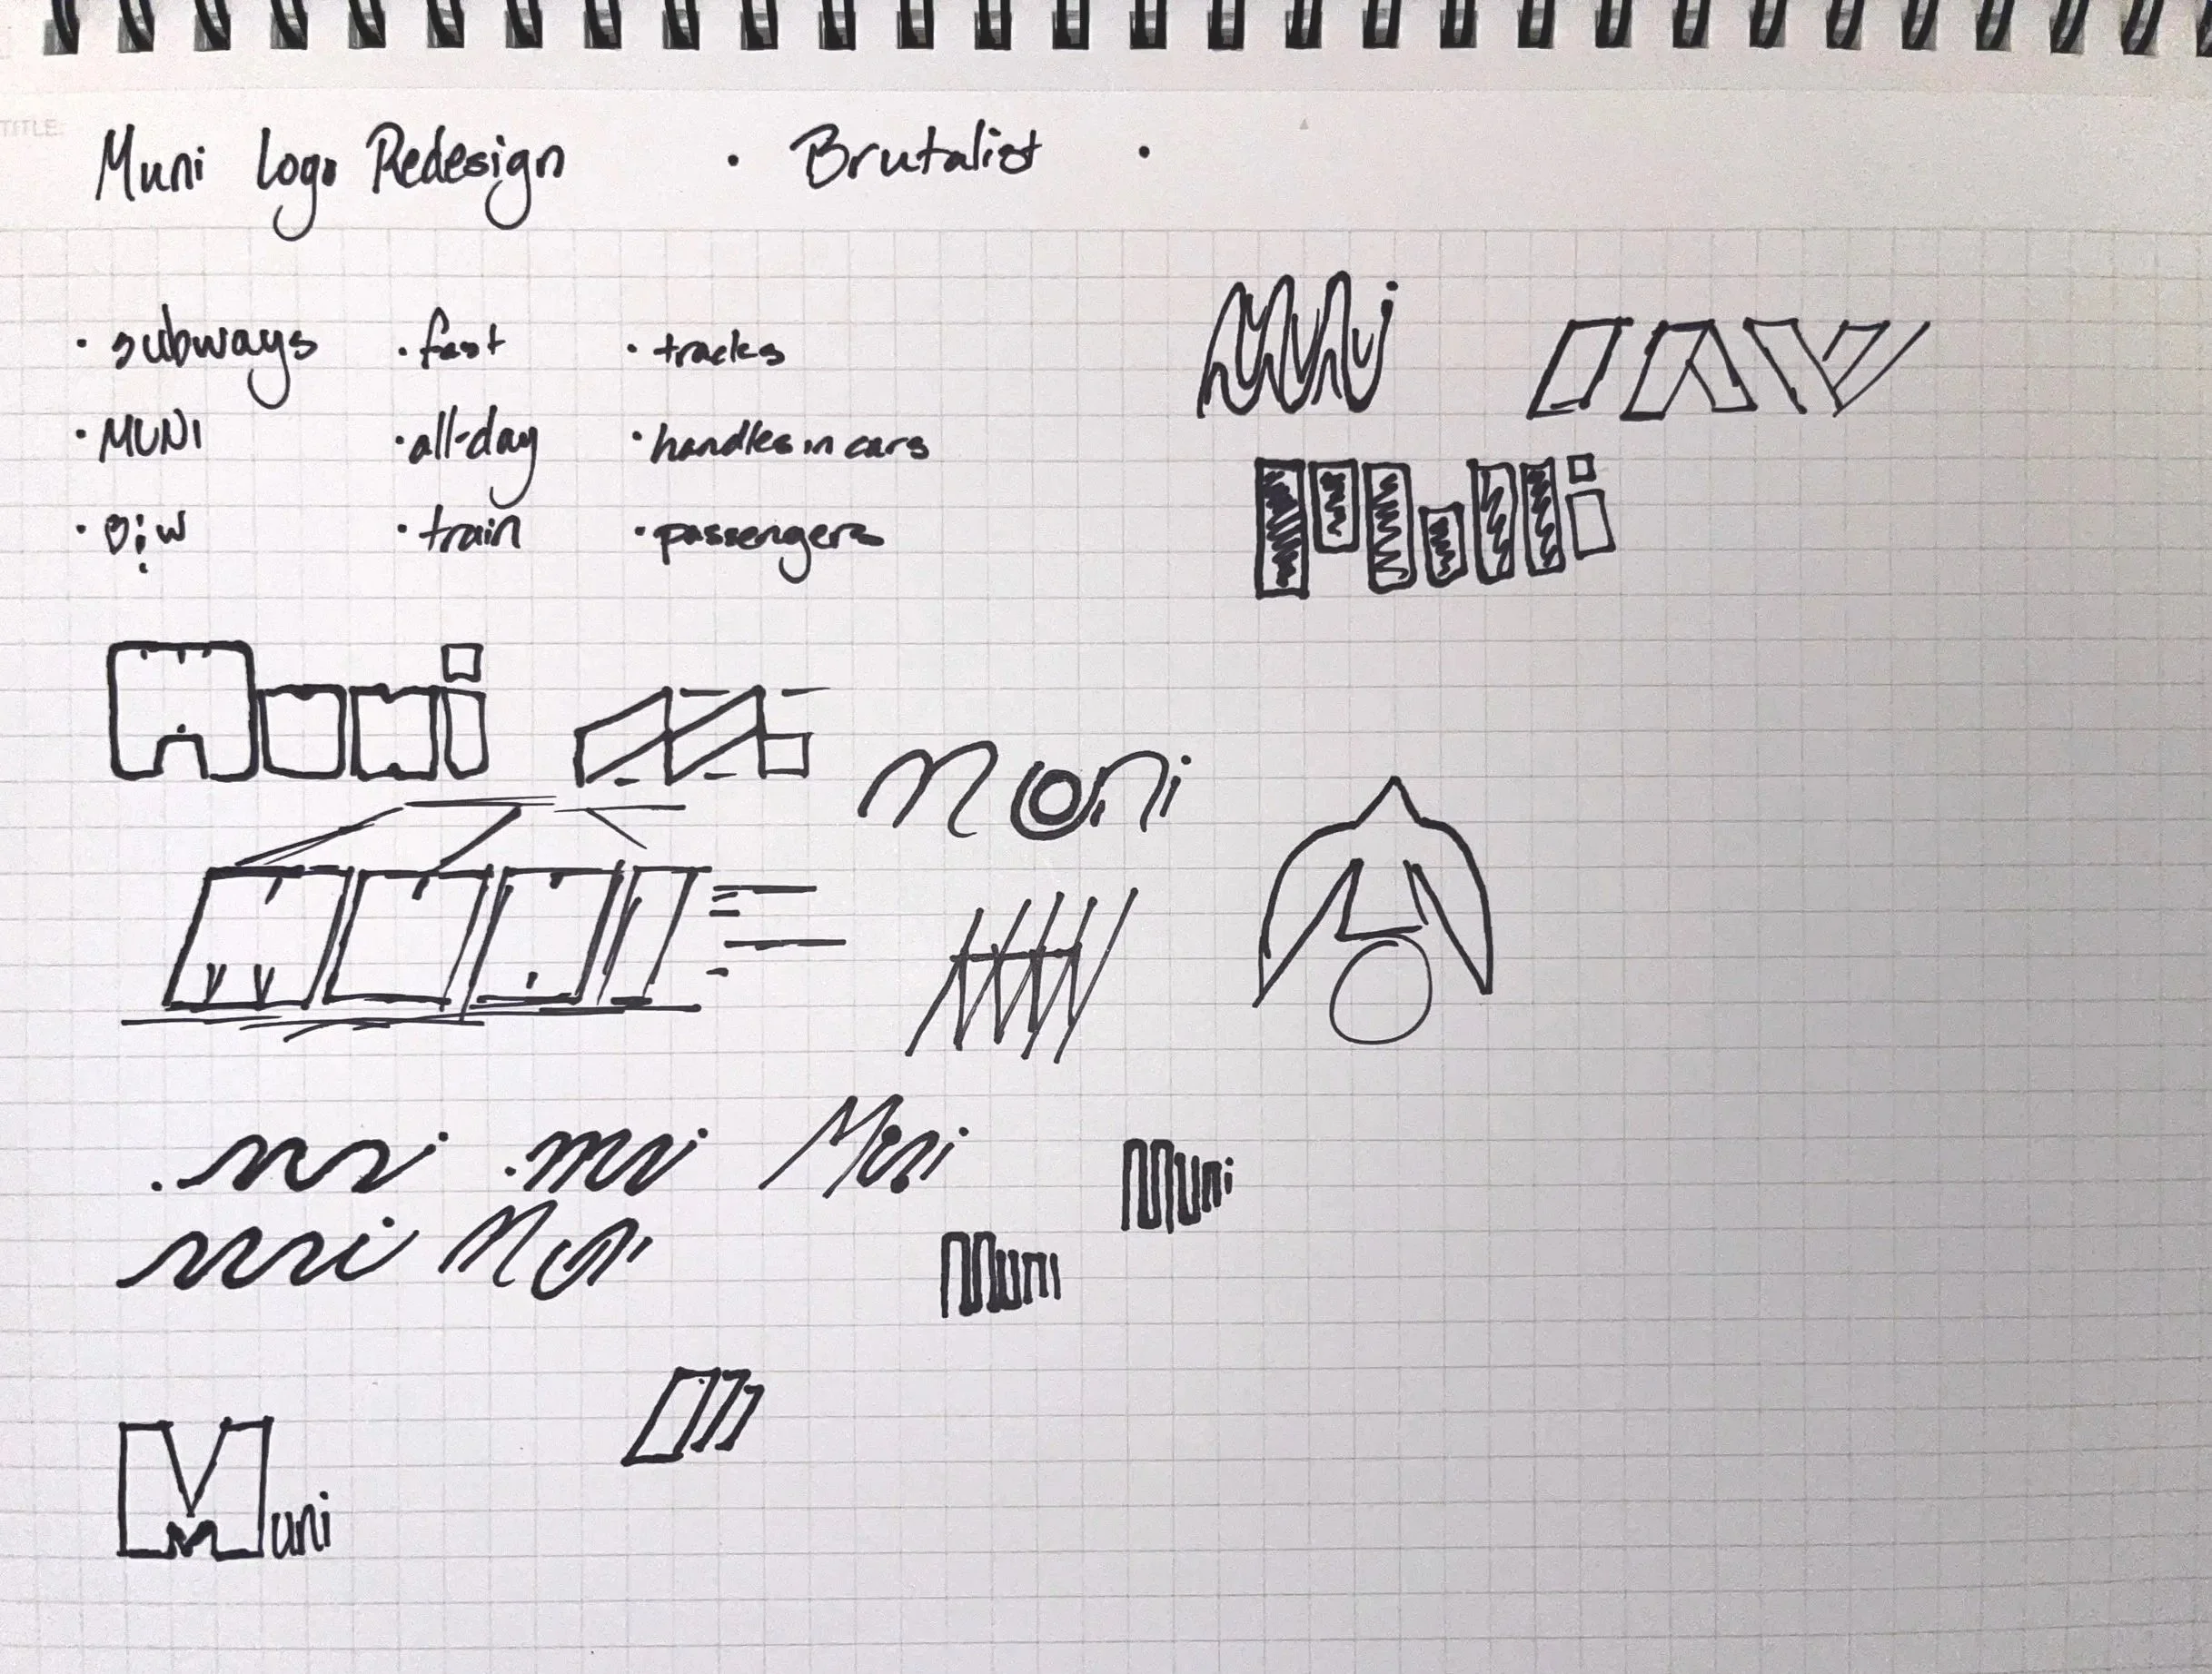 TITLE:
Muni Logo Redesign · Brutalist ·
· subways · fast · tracks
· MUNI · all-day · handles in cars
· train · passengers
Muni
Muni
Muni
Muni
Muni
Muni
Muni
Muni